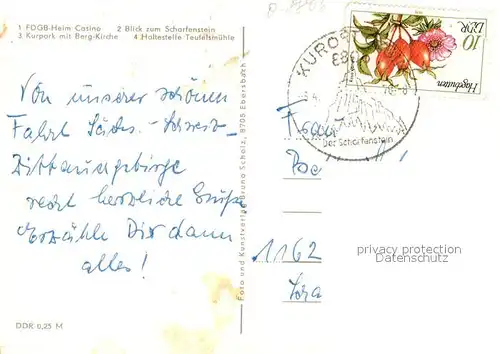 1 FDGB-Heim Casino 2 Blick zum Scharfenstein
3 Kurpark mit Berg-Kirche 4 Haltestelle Teufelsmühle
Von unserer schönen
Fahrt Sächs.-Schweiz-
Zittaugebirge
recht herzliche Grüße
Erzähle Dir dann
alles!
DDR 0,25 M
Foto und Kunstverlag Bruno Scholz, 8705 Ebersbach
KURORT
Der Scharfenstein
10
DDR
Hagebutten
Frau
1162
privacy protection
Datenschutz